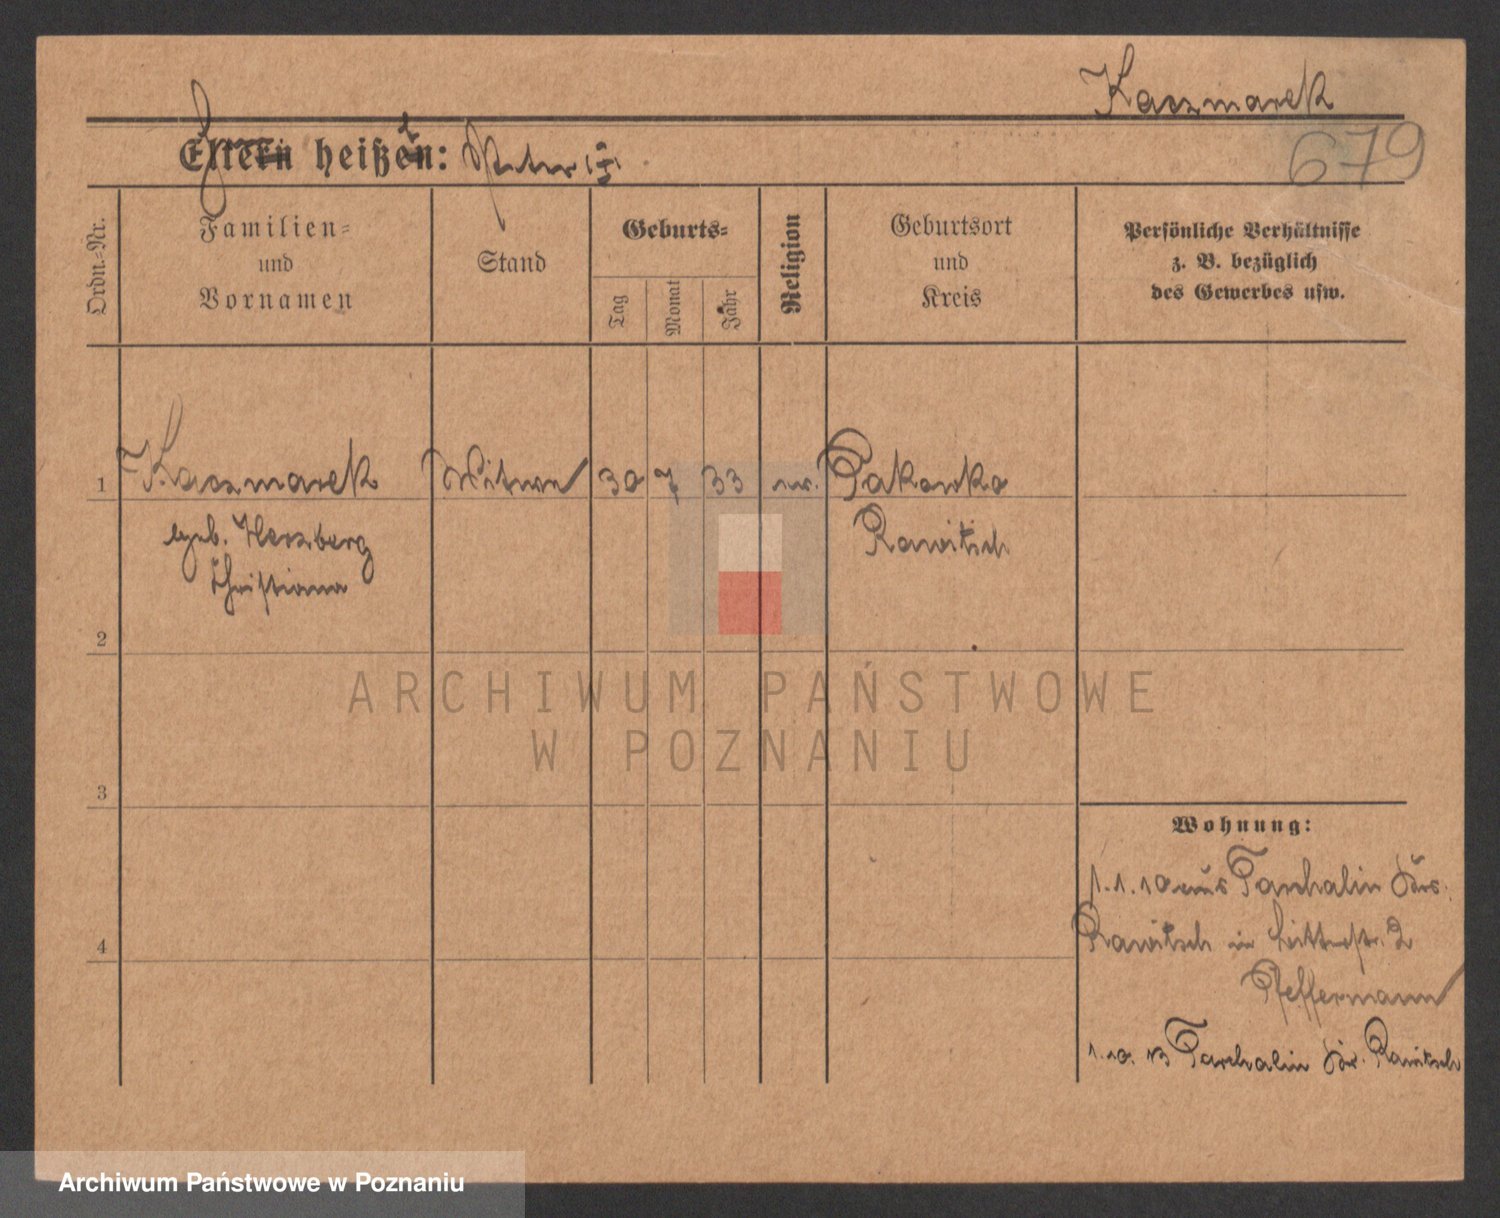 Kaczmarek
679
Eltern heißen: Peter
Ordn.-Nr.
Familien=
und
Vornamen
Stand
Geburts=
Tag
Monat
Jahr
Religion
Geburtsort
und
Kreis
Persönliche Verhältnisse
z. B. bezüglich
des Gewerbes usw.
1 Kaczmarek Witwe 30 7 33 ev.
geb. Herzberg Rawitsch
Christiana
2
3
4
ARCHIWUM PAŃSTWOWE
W POZNANIU
Wohnung:
1.1.10 aus Parchalin Krs.
Rawitsch in 2
Pfeffermann
1.10.13 Parchalin Kr. Rawitsch
Archiwum Państwowe w Poznaniu